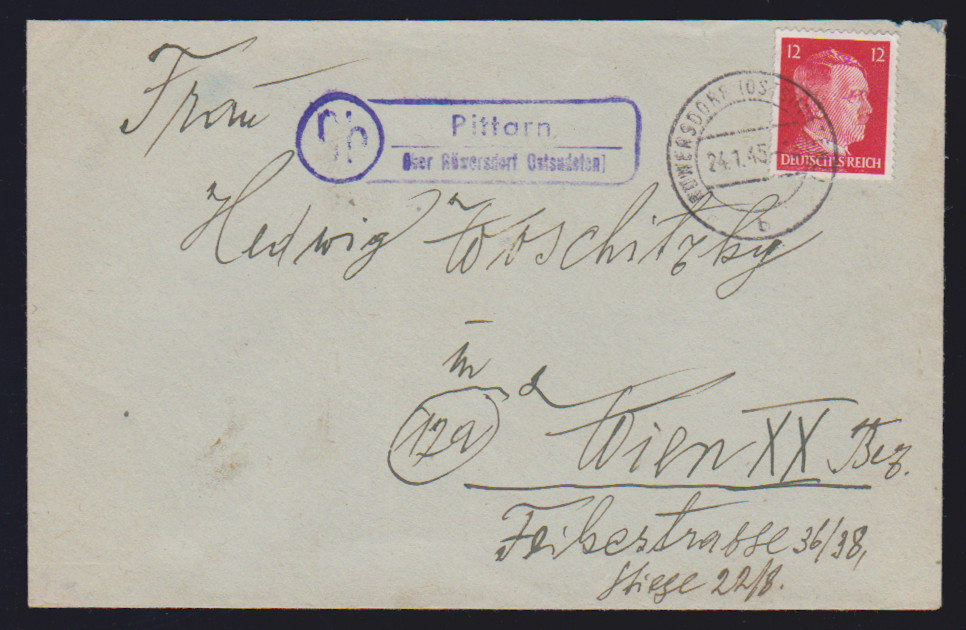 Frau
9b
Pittarn,
über Röwersdorf Ostsudeten)
RÖWERSDORF (OSTSUDET
24.1.45
b
12 12
DEUTSCHES REICH
Hedwig Woschitzky
in
12a Wien XX Bez.
36/38,
Stiege 22/8.